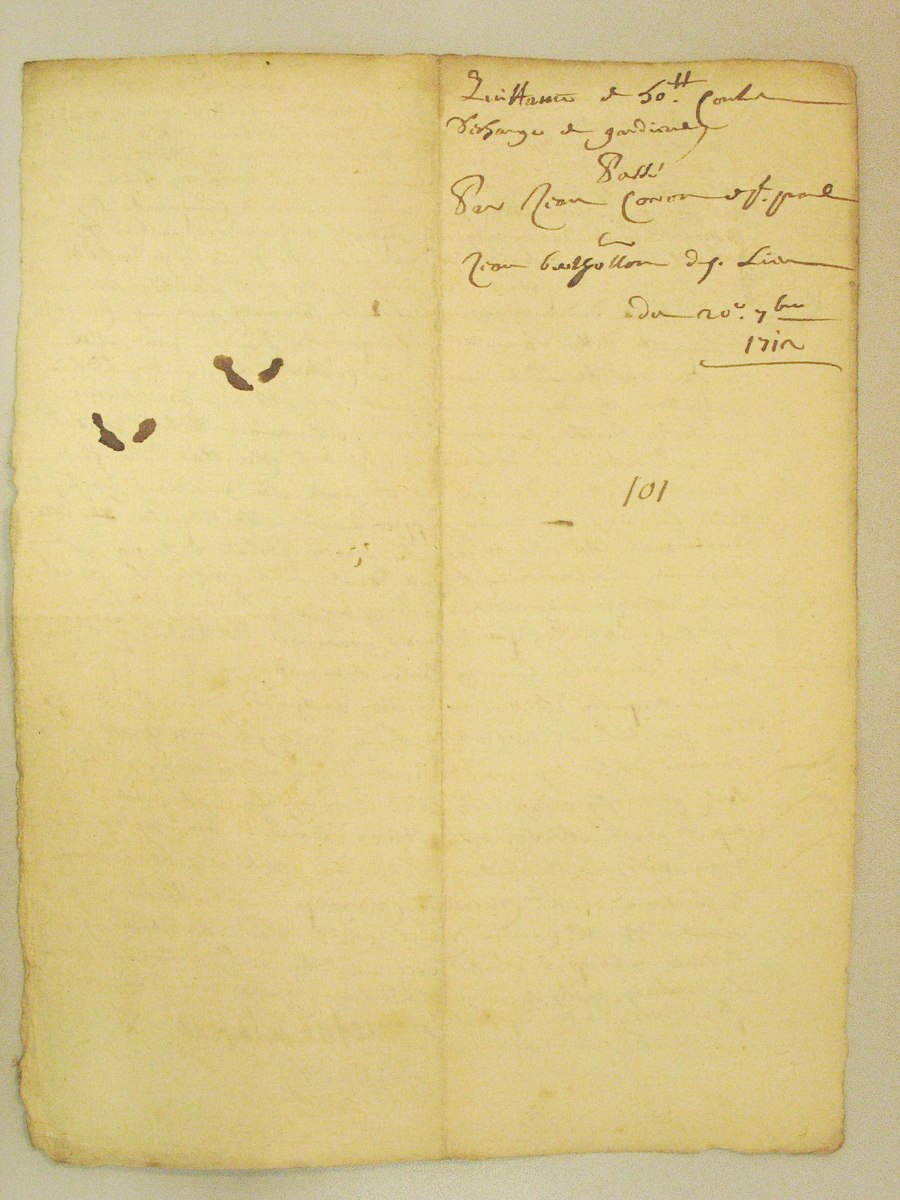 Quittance de 50.tt Conte
deschange de gardiene
Passé
Par Jean Coron de St. paul
Jean berthollon du d. Lieu
du 20e. 7bre
1712
101